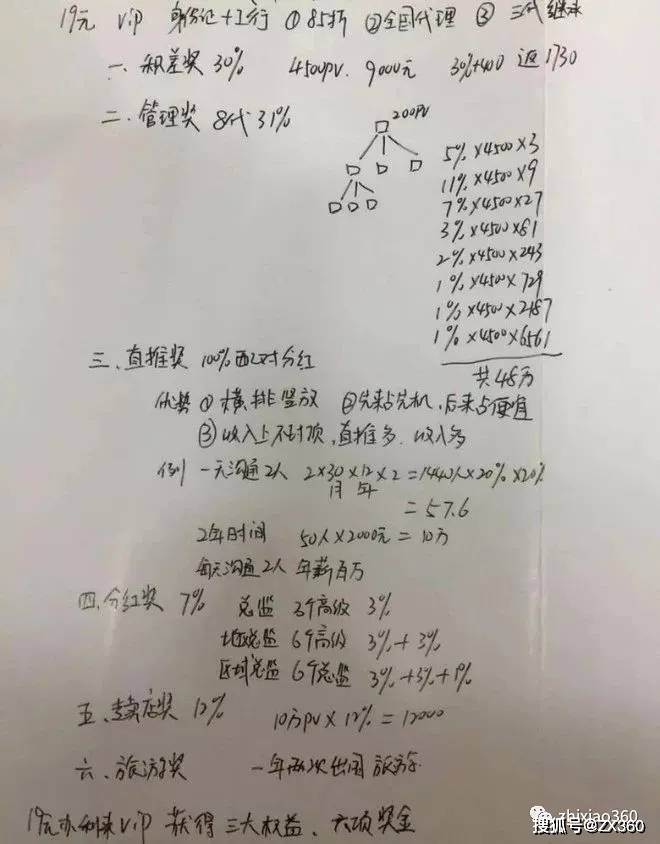 19元 vip 身份证+工行 ①85折 ②全国代理 ③ 三代继承
一、积差奖 30% 4500PV. 9000元 30%+400 返1730
二、管理奖 8代31%
200PV
5%×4500×3
11%×4500×9
7%×4500×27
3%×4500×81
2%×4500×243
1%×4500×729
1%×4500×2187
1%×4500×6561
共48万
三、直推奖 100%配对分红
优势 ①横排竖放 ②先来占先机,后来占便宜
③收入上不封顶,直推多.收入多
例 一天沟通2人 2×30×12×2=1440人×20%×20%
月 年
=57.6
2年时间 50人×2000元=10万
每天沟通2人 年薪百万
四、分红奖 7% 总监 3个高级 3%
总监 6个高级 3%+3%
区域总监 6个总监 3%+3%+1%
五、专卖店奖 12% 10万PV×12%=12000
六、旅游奖 一年两次出国旅游
19元办vip 获得三大权益、六项奖金
zhixiao360
搜狐号@ZX360